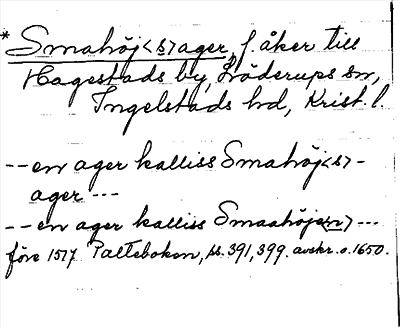 *Smahöj<s>ager, f. åker till
Hagestads by, Löderups sn,
Ingelstads hd, Krist. l.
--en ager kalliss Smahöj<s>-
ager ---
--en ager kalliss Smaahöje<n> ---
före 1517 Paltebokon, ss. 391, 399. avskr. o. 1650.